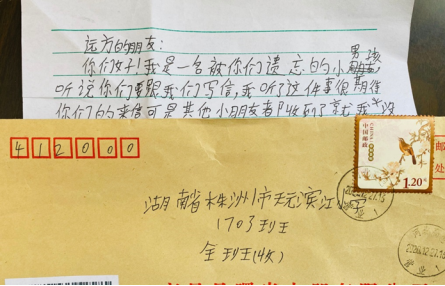 远方的朋友:
你们好!我是一名被你们遗忘的小男孩
听说你们要跟我们写信,我听了这件事很期待
你们的来信可是其他小朋友都收到了就我没
412000
中国邮政
CHINA
1.20元
湖南省株洲市天元滨江小
1703班
全班(收)
邮
处
营业1